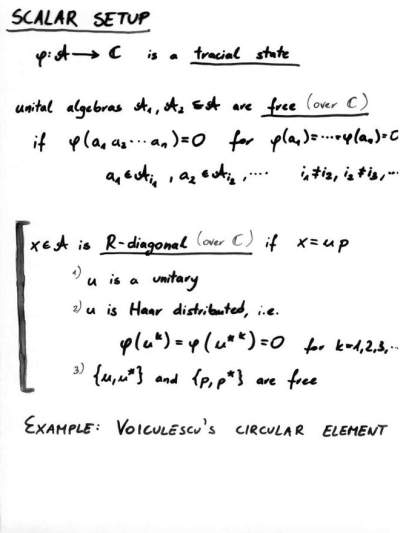 SCALAR SETUP
φ: A → C is a tracial state
unital algebras A₁, A₂ ⊆ A are free (over C)
if φ(a₁ a₂ ⋯ aₙ) = 0 for φ(a₁) = ⋯ = φ(aₙ) = 0
a₁ ∈ A_{i₁}, a₂ ∈ A_{i₂}, ⋯ i₁ ≠ i₂, i₂ ≠ i₃, ⋯
x ∈ A is R-diagonal (over C) if x = u p
1) u is a unitary
2) u is Haar distributed, i.e.
φ(u^k) = φ(u*^k) = 0 for k = 1, 2, 3, ⋯
3) {u, u*} and {p, p*} are free
EXAMPLE: VOICULESCU'S CIRCULAR ELEMENT